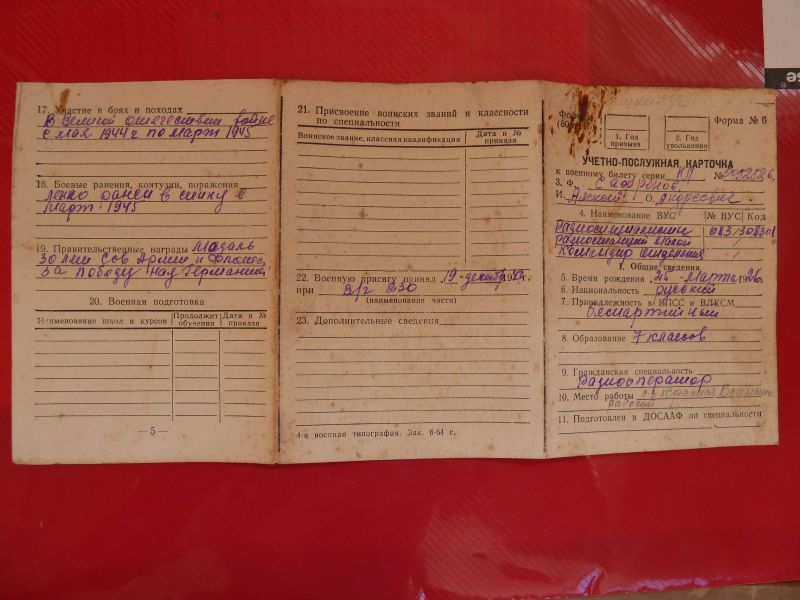 17. Участие в боях и походах
В великой отечествен войне
с мая 1944 г по март 1945
18. Боевые ранения, контузии, поражения
легко ранен в спину в
март 1945
19. Правительственные награды Мадаль
30 лет Сов Армии и Флота,
за победу над Германией
20. Военная подготовка
Наименование школ и курсов
Продолжит обучения
Дата и № приказа
— 5 —
21. Присвоение воинских званий и классности
по специальности
Воинское звание, классная квалификация
Дата и №
приказа
22. Военную присягу принял 19 декабр 194 г.
при в/г 230
(наименование части)
23. Дополнительные сведения
4-я военная типография. Зак. 6-64 г.
Форма № 6
1. Год
призыва
2. Год
увольнения
УЧЕТНО-ПОСЛУЖНАЯ КАРТОЧКА
к военному билету серии НП №
3. Ф. Сафронов
И. Алексей О. Андреевич
4. Наименование ВУС
№ ВУС
Код
083
I. Общие сведения
5. Время рождения 25 марта 1926.
6. Национальность русский
7. Принадлежность к КПСС и ВЛКСМ
беспартийный
8. Образование 7 классов
9. Гражданская специальность
радиооператор
10. Место работы
рабочий
11. Подготовлен в ДОСААФ по специальности